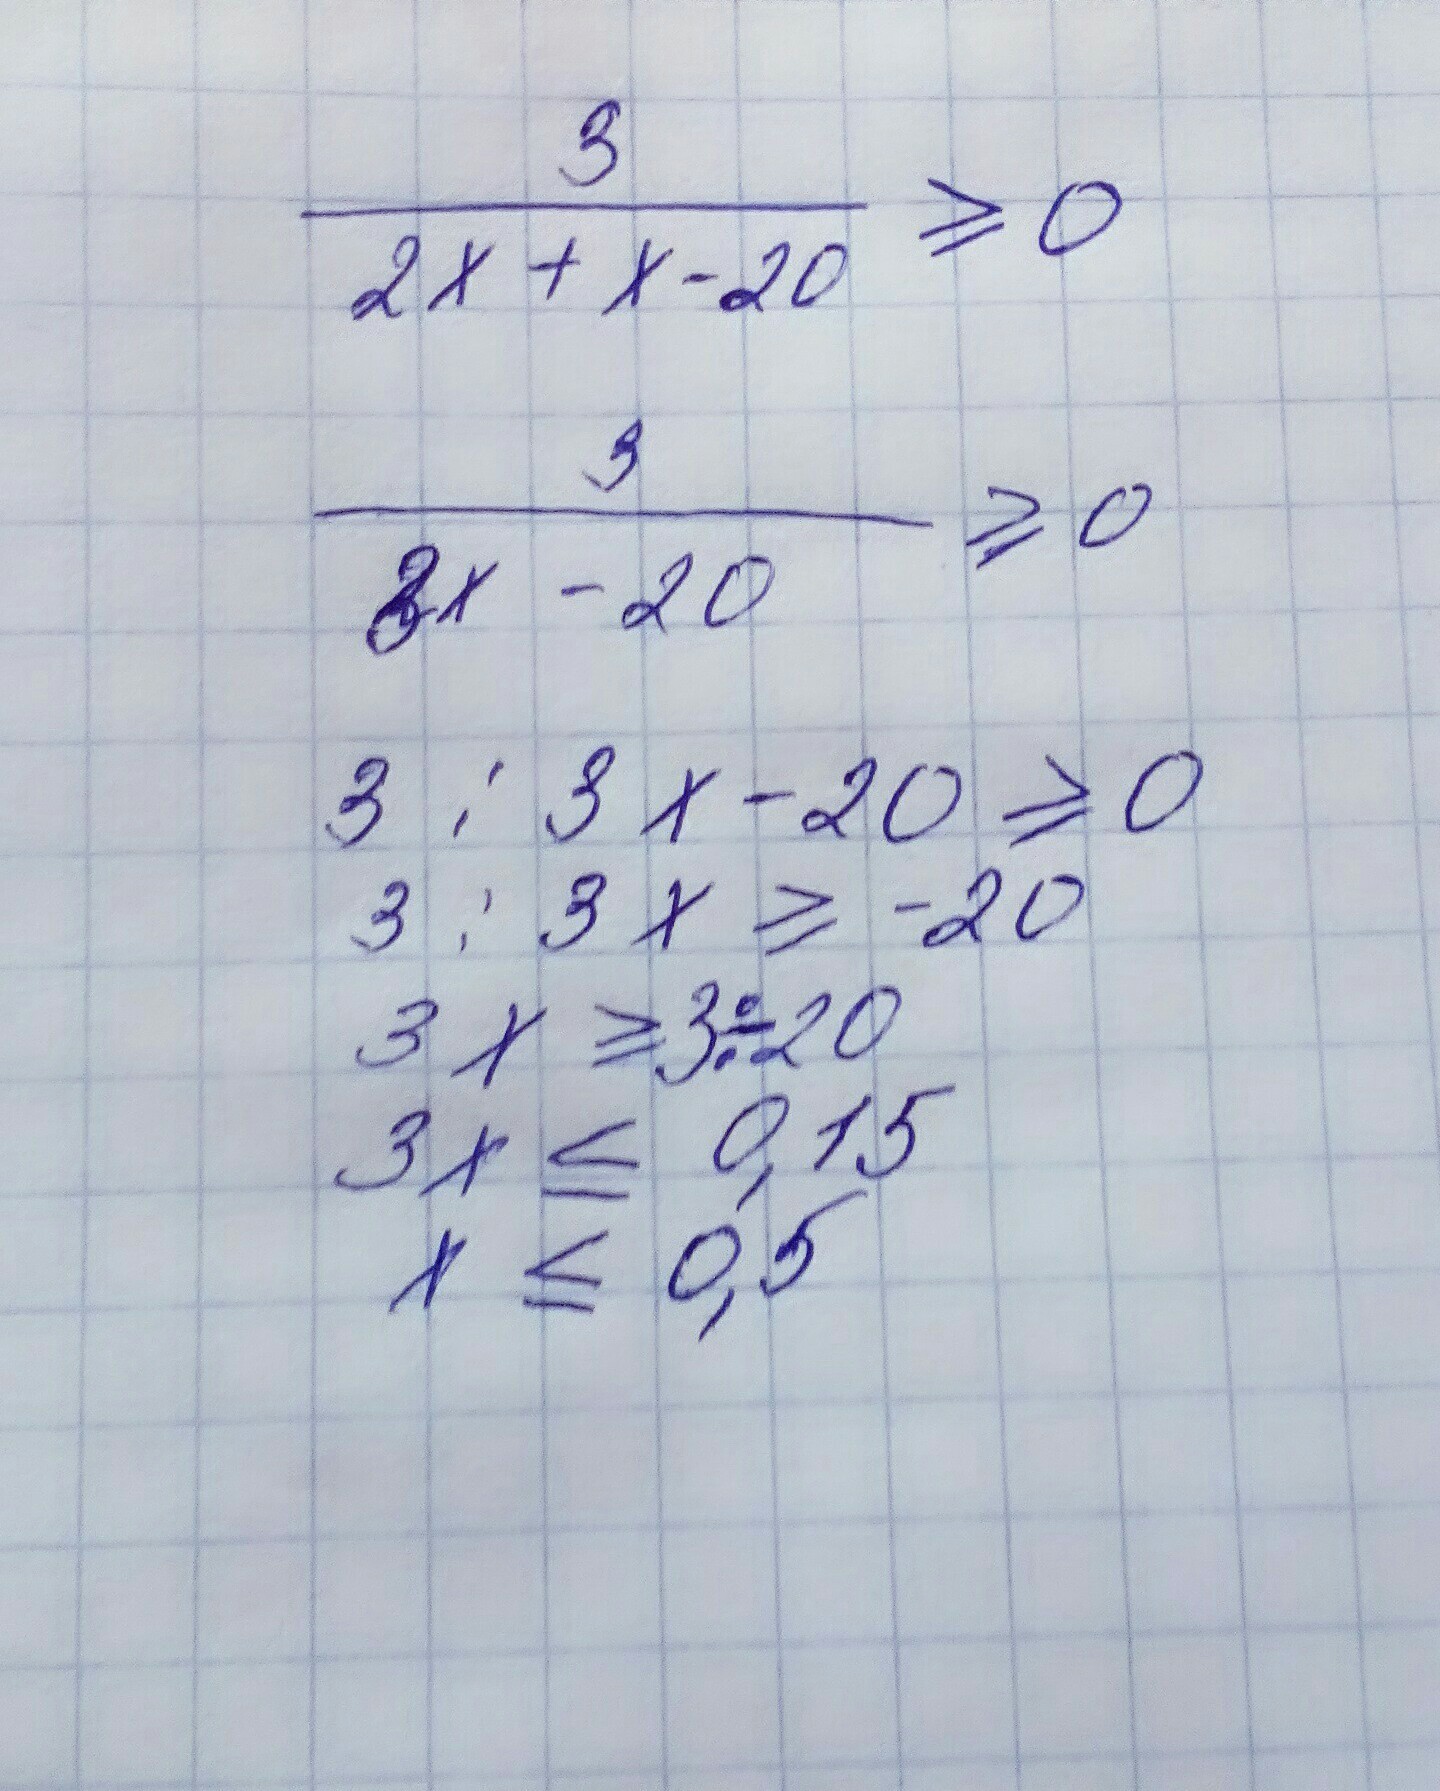 3
2x + x - 20 ⩾ 0
3
3x - 20 ⩾ 0
3 : 3x - 20 ⩾ 0
3 : 3x ⩾ -20
3x ⩾ 3÷20
3x ≤ 0,15
x ≤ 0,5